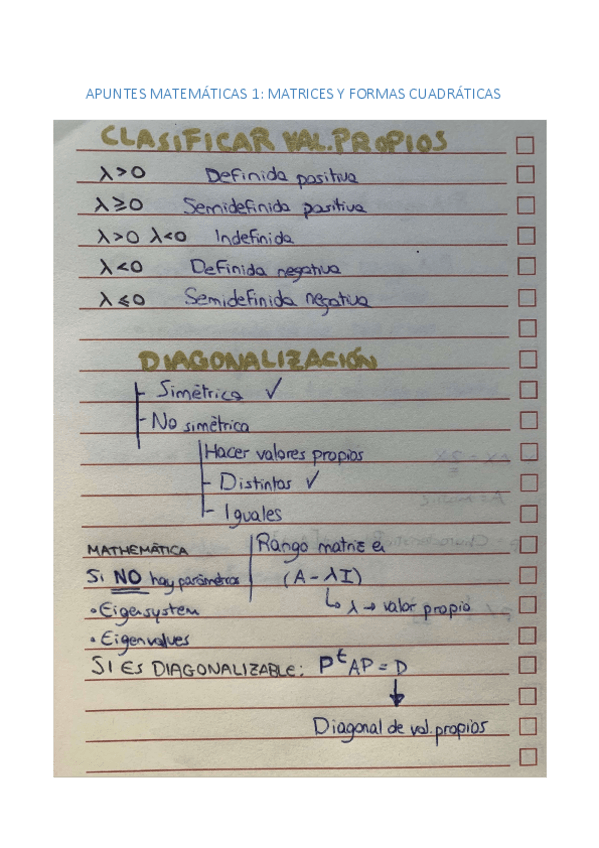 APUNTES MATEMÁTICAS 1: MATRICES Y FORMAS CUADRÁTICAS
CLASIFICAR VAL. PROPIOS
λ>0 Definida positiva
λ≥0 Semidefinida positiva
λ>0 λ<0 Indefinida
λ<0 Definida negativa
λ≤0 Semidefinida negativa
DIAGONALIZACIÓN
- Simétrica ✓
- No simétrica
Hacer valores propios
- Distintos ✓
- Iguales
Rango matriz en
(A - λI)
↳ λ → valor propio
MATHEMÁTICA
Si NO hay parámetros
• Eigensystem
• Eigenvalues
SI ES DIAGONALIZABLE: PᵗAP = D
↓
Diagonal de val. propios